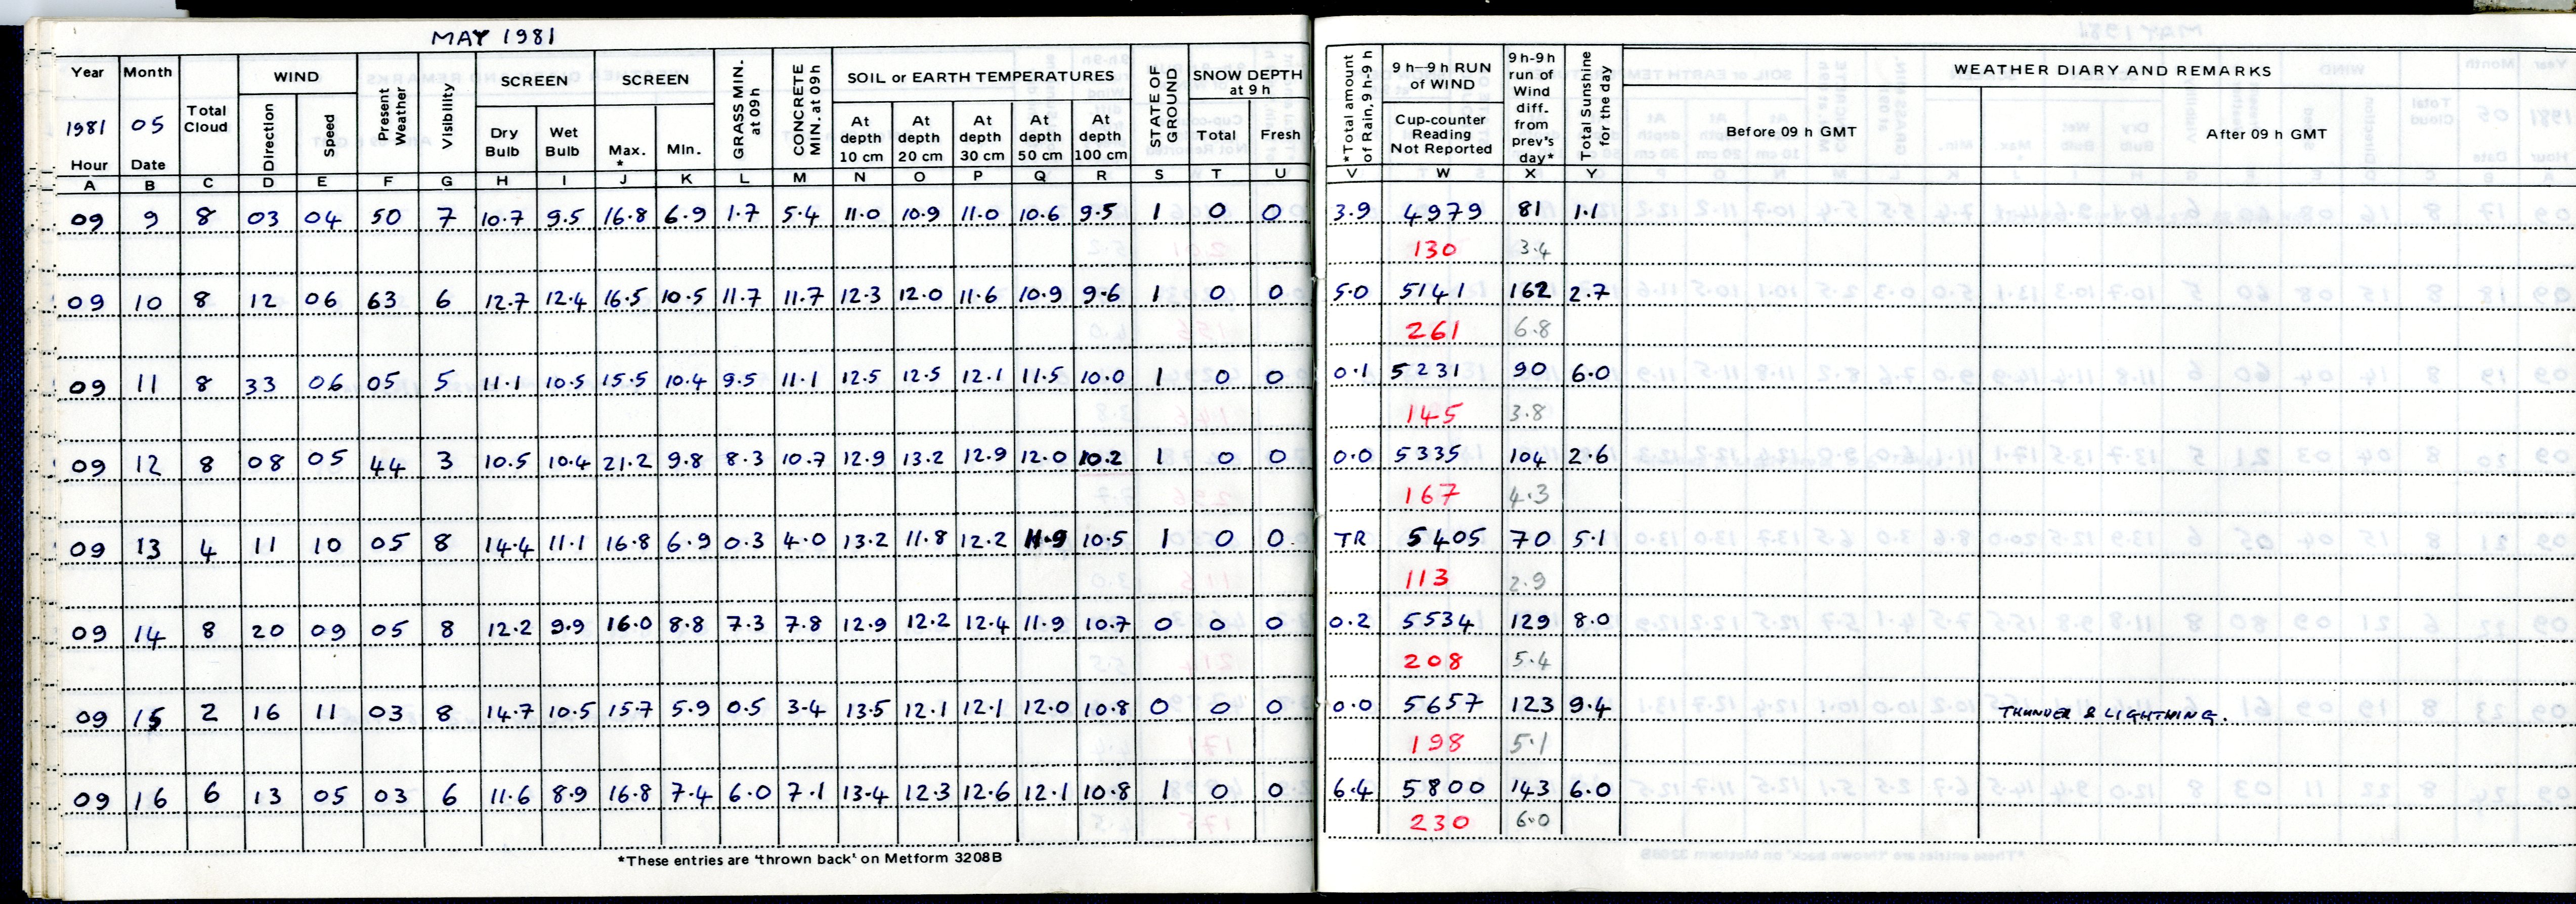 MAY 1981
Year Month Total Cloud WIND Present Weather Visibility SCREEN SCREEN GRASS MIN. at 09h CONCRETE MIN. at 09h SOIL or EARTH TEMPERATURES STATE OF GROUND SNOW DEPTH at 9 h *Total amount of Rain, 9 h-9 h 9 h—9 h RUN of WIND 9 h-9h run of Wind diff. from prev's day* Total Sunshine for the day WEATHER DIARY AND REMARKS
1981 05 Direction Speed Dry Bulb Wet Bulb Max. * Min. At depth 10 cm At depth 20 cm At depth 30 cm At depth 50 cm At depth 100 cm Total Fresh Cup-counter Reading Not Reported Before 09 h GMT After 09 h GMT
Hour Date
A B C D E F G H I J K L M N O P Q R S T U V W X Y
09 9 8 03 04 50 7 10.7 9.5 16.8 6.9 1.7 5.4 11.0 10.9 11.0 10.6 9.5 1 0 0 3.9 4979 81 1.1
130 3.4
09 10 8 12 06 63 6 12.7 12.4 16.5 10.5 11.7 11.7 12.3 12.0 11.6 10.9 9.6 1 0 0 5.0 5141 162 2.7
261 6.8
09 11 8 33 06 05 5 11.1 10.5 15.5 10.4 9.5 11.1 12.5 12.5 12.1 11.5 10.0 1 0 0 0.1 5231 90 6.0
145 3.8
09 12 8 08 05 44 3 10.5 10.4 21.2 9.8 8.3 10.7 12.9 13.2 12.9 12.0 10.2 1 0 0 0.0 5335 104 2.6
167 4.3
09 13 4 11 10 05 8 14.4 11.1 16.8 6.9 0.3 4.0 13.2 11.8 12.2 11.9 10.5 1 0 0 TR 5405 70 5.1
113 2.9
09 14 8 20 09 05 8 12.2 9.9 16.0 8.8 7.3 7.8 12.9 12.2 12.4 11.9 10.7 0 0 0 0.2 5534 129 8.0
208 5.4
09 15 2 16 11 03 8 14.7 10.5 15.7 5.9 0.5 3.4 13.5 12.1 12.1 12.0 10.8 0 0 0 0.0 5657 123 9.4 THUNDER & LIGHTNING.
198 5.1
09 16 6 13 05 03 6 11.6 8.9 16.8 7.4 6.0 7.1 13.4 12.3 12.6 12.1 10.8 1 0 0 6.4 5800 143 6.0
230 6.0
*These entries are 'thrown back' on Metform 3208B